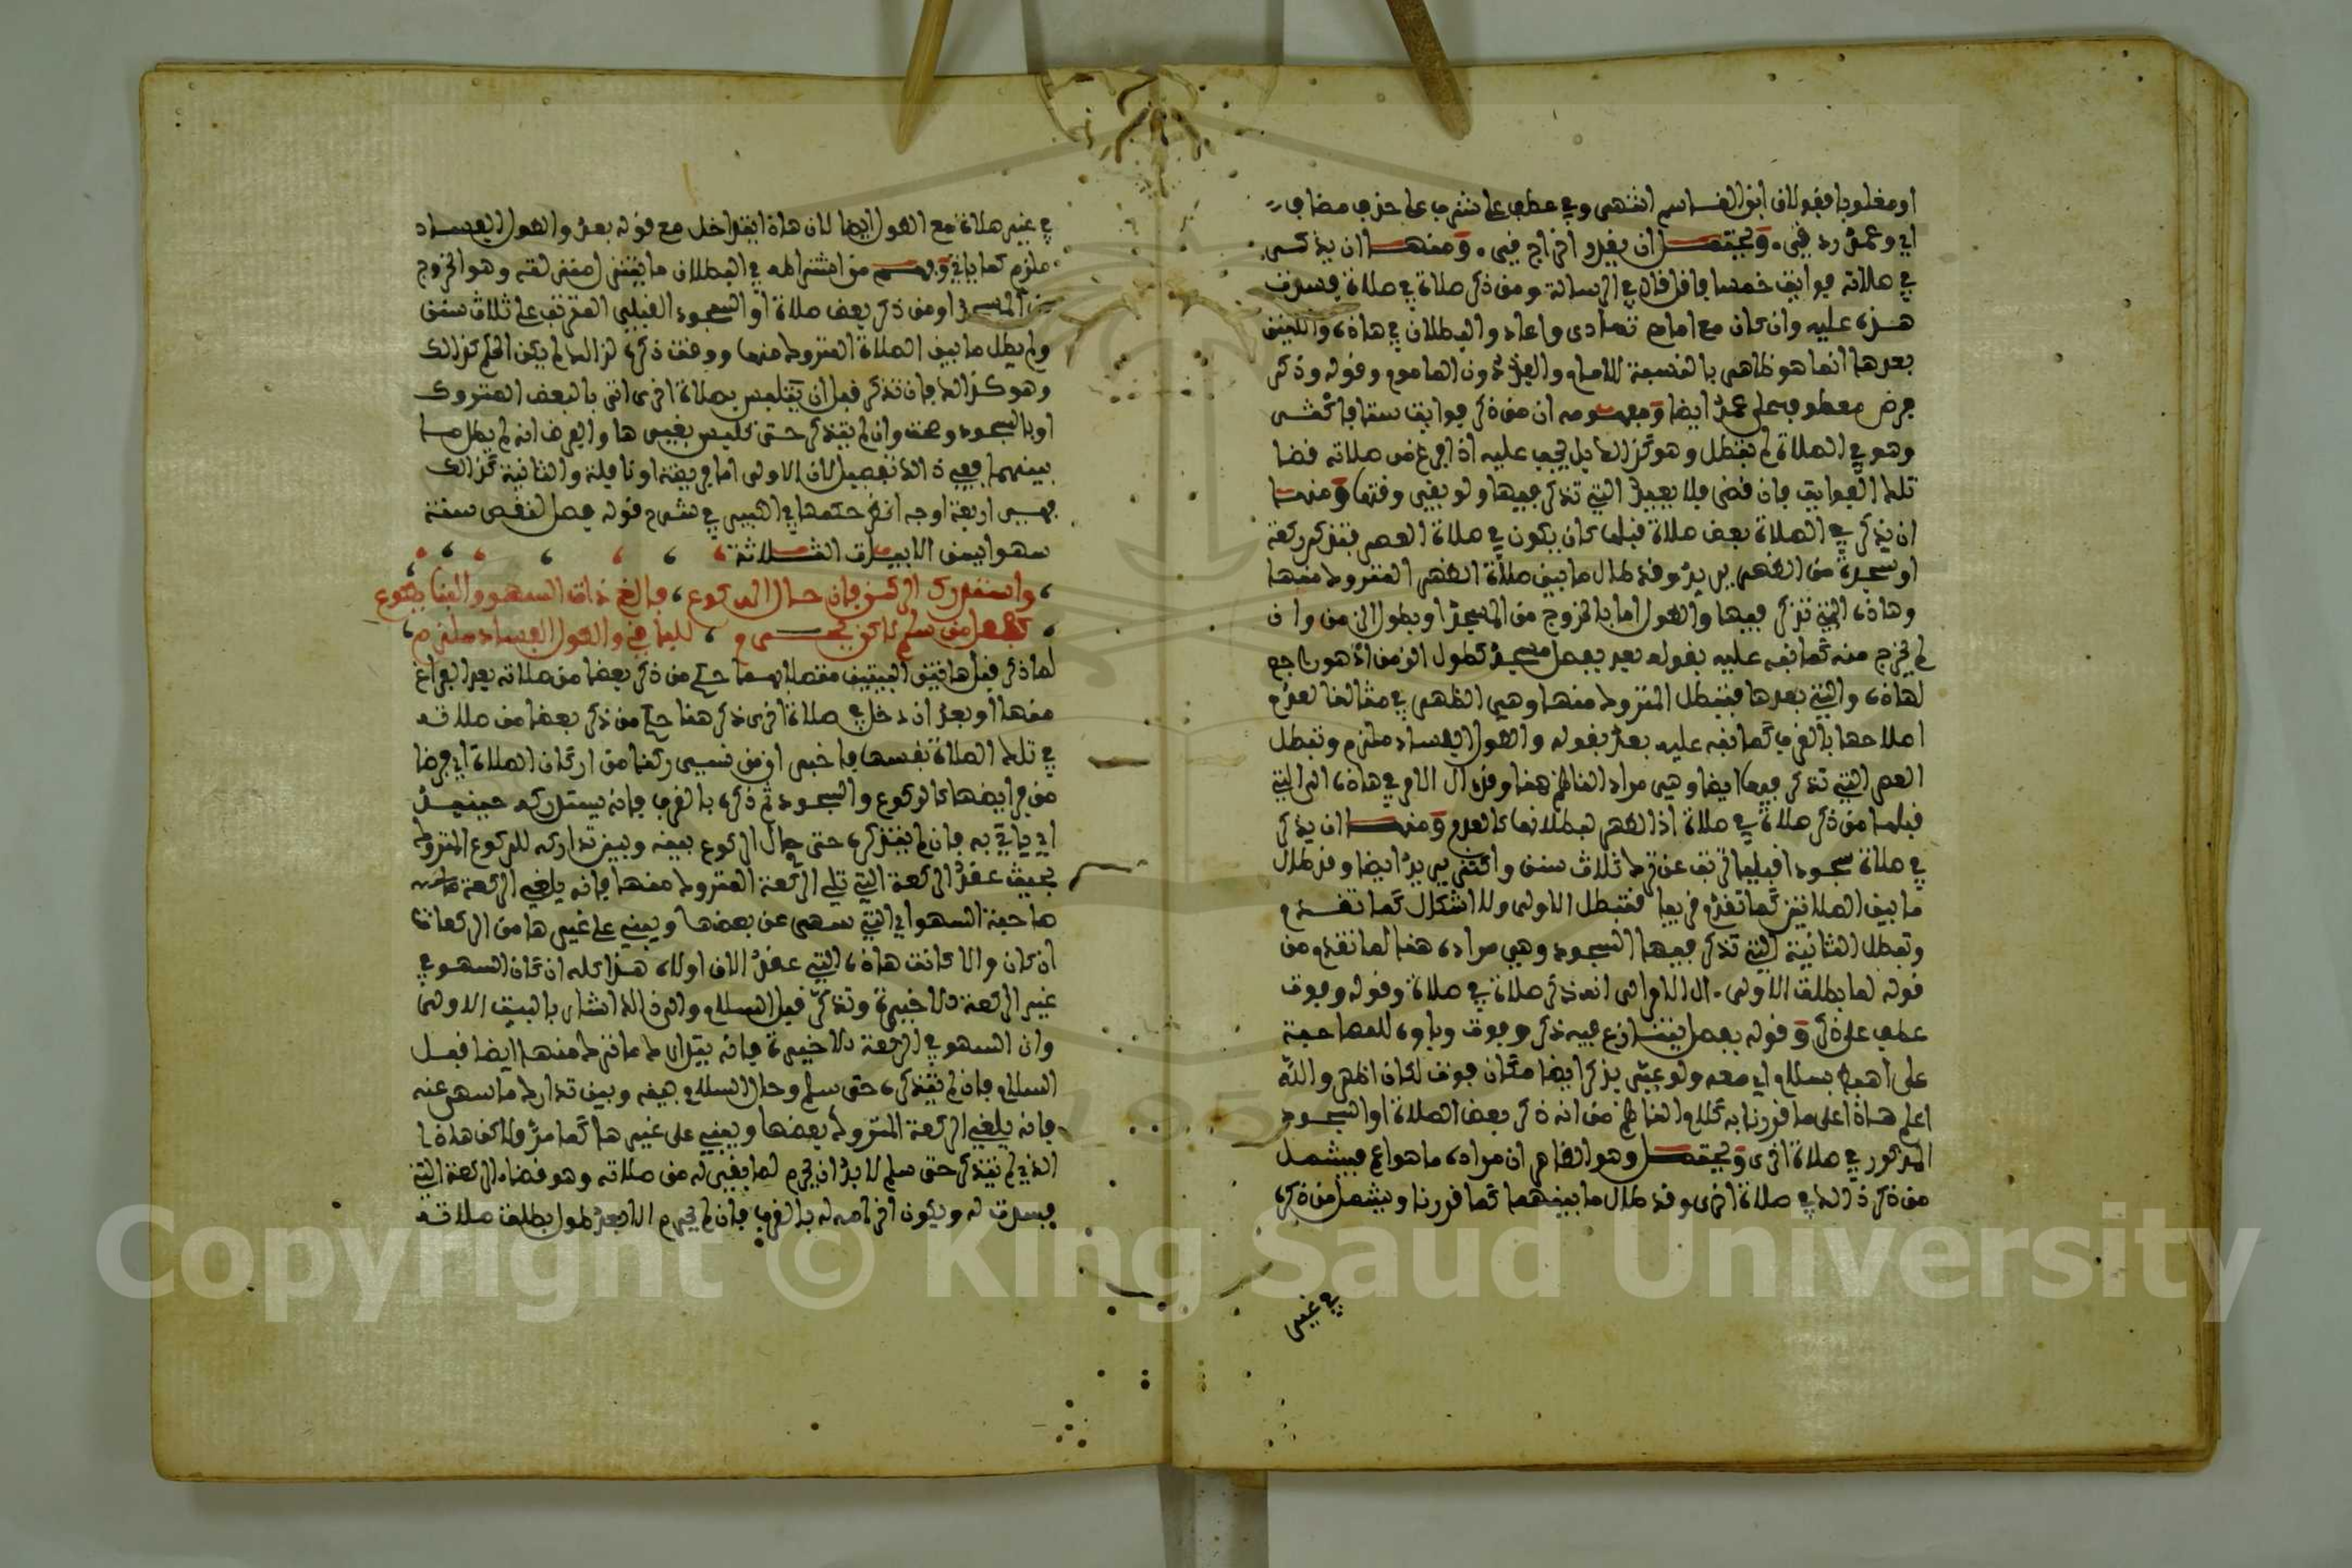 او مغلوبا فقولان ابن القاسم انتهى وفي عطف على شرب على حذف مضاف
اي وعمد رد فيي. ويحتمل ان يقدر اخراج فيي. ومنها ان يذكر
في صلاته فوايت خمسا فاقل قال في الرسالة ومن ذكر صلاة في صلاة فسدت
هذه عليه وان كان مع امام تمادى واعاد والبطلان في هاذه والتين
بعدها انما هو ظاهر بالنسبة للامام والفذ دون الماموم وقوله وذكر
فرض معطوف على عمد ايضا ومفهومه ان من ذكر فوايت ستا فاكثر
وهو في الصلاة لم تبطل وهو كذالك بل يجب عليه اذا فرغ من صلاته قضا
تلك الفوايت فان قضى فلا يعيد التي تذكر فيها ولو بقي وقتها ومنها
ان يذكر في الصلاة بعض صلاة قبلها كان يكون في صلاة العصر فتذكر ركعة
او سجدة من الظهر وقد طال ما بين صلاة الظهر المتروك منها
وهاذه التي تذكر فيها والطول اما بالخروج من المسجد او بطول الزمن وان
لم يخرج منه كما نبه عليه بقوله بعد بفصل مسجد كطول الزمن اذ هو راجع
لهاذه والتي بعدها فتبطل المتروك منها وهي الظهر في مثالنا لعدم
اصلاحها بالقرب كما نبه عليه بعد بقوله والطول الفساد ملزم وتبطل
العصر التي تذكر فيها ايضا وهي مراد الناظم هنا وقد ال الامر في هاذه الى التي
قبلها من ذكر صلاة في صلاة اذ الظهر لبطلانها كالعدم ومنها ان يذكر
في صلاة سجودا قبليا ترتب عن ترك ثلاث سنن واكثر من يد ايضا وقد طال
ما بين الصلاتين كما تقدم قريبا فتبطل الاولى ولا اشكال كما تقدم
وتبطل الثانية التي تذكر فيها السجود وهي مراده هنا لما تقدم من
قوله لما بطلت الاولى. ال الامر الى انه ذكر صلاة في صلاة وقوله وفوت
عطف على ذكر وقوله بفصل يتنازع فيه ذكر وفوت وباوه للمصاحبة
على اهبط بسلام اي معه ولو عبر بذكر ايضا مكان فوت لكان اظهر والله
اعلم هاذا على ما قررنا به كلام الناظم من انه ذكر بعض الصلاة او السجود
المذكور في صلاة اخرى ويحتمل وهو الظاهر ان مراده ما هو اعم فيشمل
من ذكر ذالك في صلاة اخرى وقد طال ما بينهما كما قررنا ويشمل من ذكره
في غير
في غير صلاة مع الطول ايضا لان هاذا يتداخل مع قوله بعد والطول الفساد
ملزم كما ياتي وفهم من اشتراطه في البطلان ما بين امنى لفه وهو الخروج
من المسجد او من ذكر بعض صلاة او السجود القبلي المترتب على ثلاث سنن
ولم يطل ما بين الصلاة المتروك منها ووقت ذكره لذالك لم يكن الحكم كذالك
وهو كذالك فان تذكر قبل ان يتلبس بصلاة اخرى اتى بالبعض المتروك
او بالسجود وصحت وان لم يتذكر حتى تلبس بغيرها والفرض انه لم يطل ما
بينهما ففي ذالك تفصيل لان الاولى اما فريضة او نافلة والثانية كذالك
فهي اربعة اوجه انظر حكمها في الكبير في شرح قوله فصل لنقص سنة
سهوا يسن الابيات الثلاثة
واستدرك الركن فان حال الركوع فالغ ذات السهو والبنا يطوع
كفعل من سلم لاكن يحرم للباقي والطول الفساد ملزم
لما ذكر قبل هاذين البيتين متصلا بهما حكم من ذكر بعضا من صلاته بعد الفراغ
منها او بعد ان دخل في صلاة اخرى ذكر هنا حكم من ذكر بعضا من صلاته
في تلك الصلاة نفسها فاخبر ان من نسي ركنا من اركان الصلاة اي فرضا
من فرايضها كالركوع والسجود ثم ذكره بالقرب فانه يستدركه حينيذ
اي ياتي به فان لم يتذكره حتى حال الركوع بينه وبين تداركه للركوع المتروك
بحيث عقد الركعة التي تلي الركعة المتروك منها فانه يلغي الركعة
صاحبة السهو اي التي سهى عن بعضها ويبني على غيرها من الركعات
ان كان والا كانت هاذه التي عقد الان اولاه هذا كله ان كان السهو في
غير الركعة الاخيرة وتذكر قبل السلام والى ذالك اشار بالبيت الاول
وان السهو في الركعة الاخيرة فانه يتدارك ما ترك منها ايضا قبل
السلام فان لم يتذكره حتى سلم وحال السلام بينه وبين تدارك ما سهى عنه
فانه يلغي الركعة المتروك بعضها ويبني على غيرها كما مر ولاكن هاذا
الذي لم يتذكر حتى سلم لا بد ان يحرم لما بقي له من صلاته وهو قضاء الركعة التي
فسدت له ويكون احرامه له بالقرب فان لم يحرم الا بعد طول بطلت صلاته
Copyright © King Saud University
1957